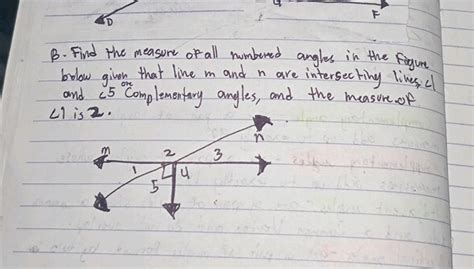 D
G
F
B. Find the measure of all numbered angles in the figure
below given that line m and n are intersecting lines, ∠1
and ∠5 are Complementary angles, and the measure of
∠1 is 2.
m
n
2
3
1
4
5